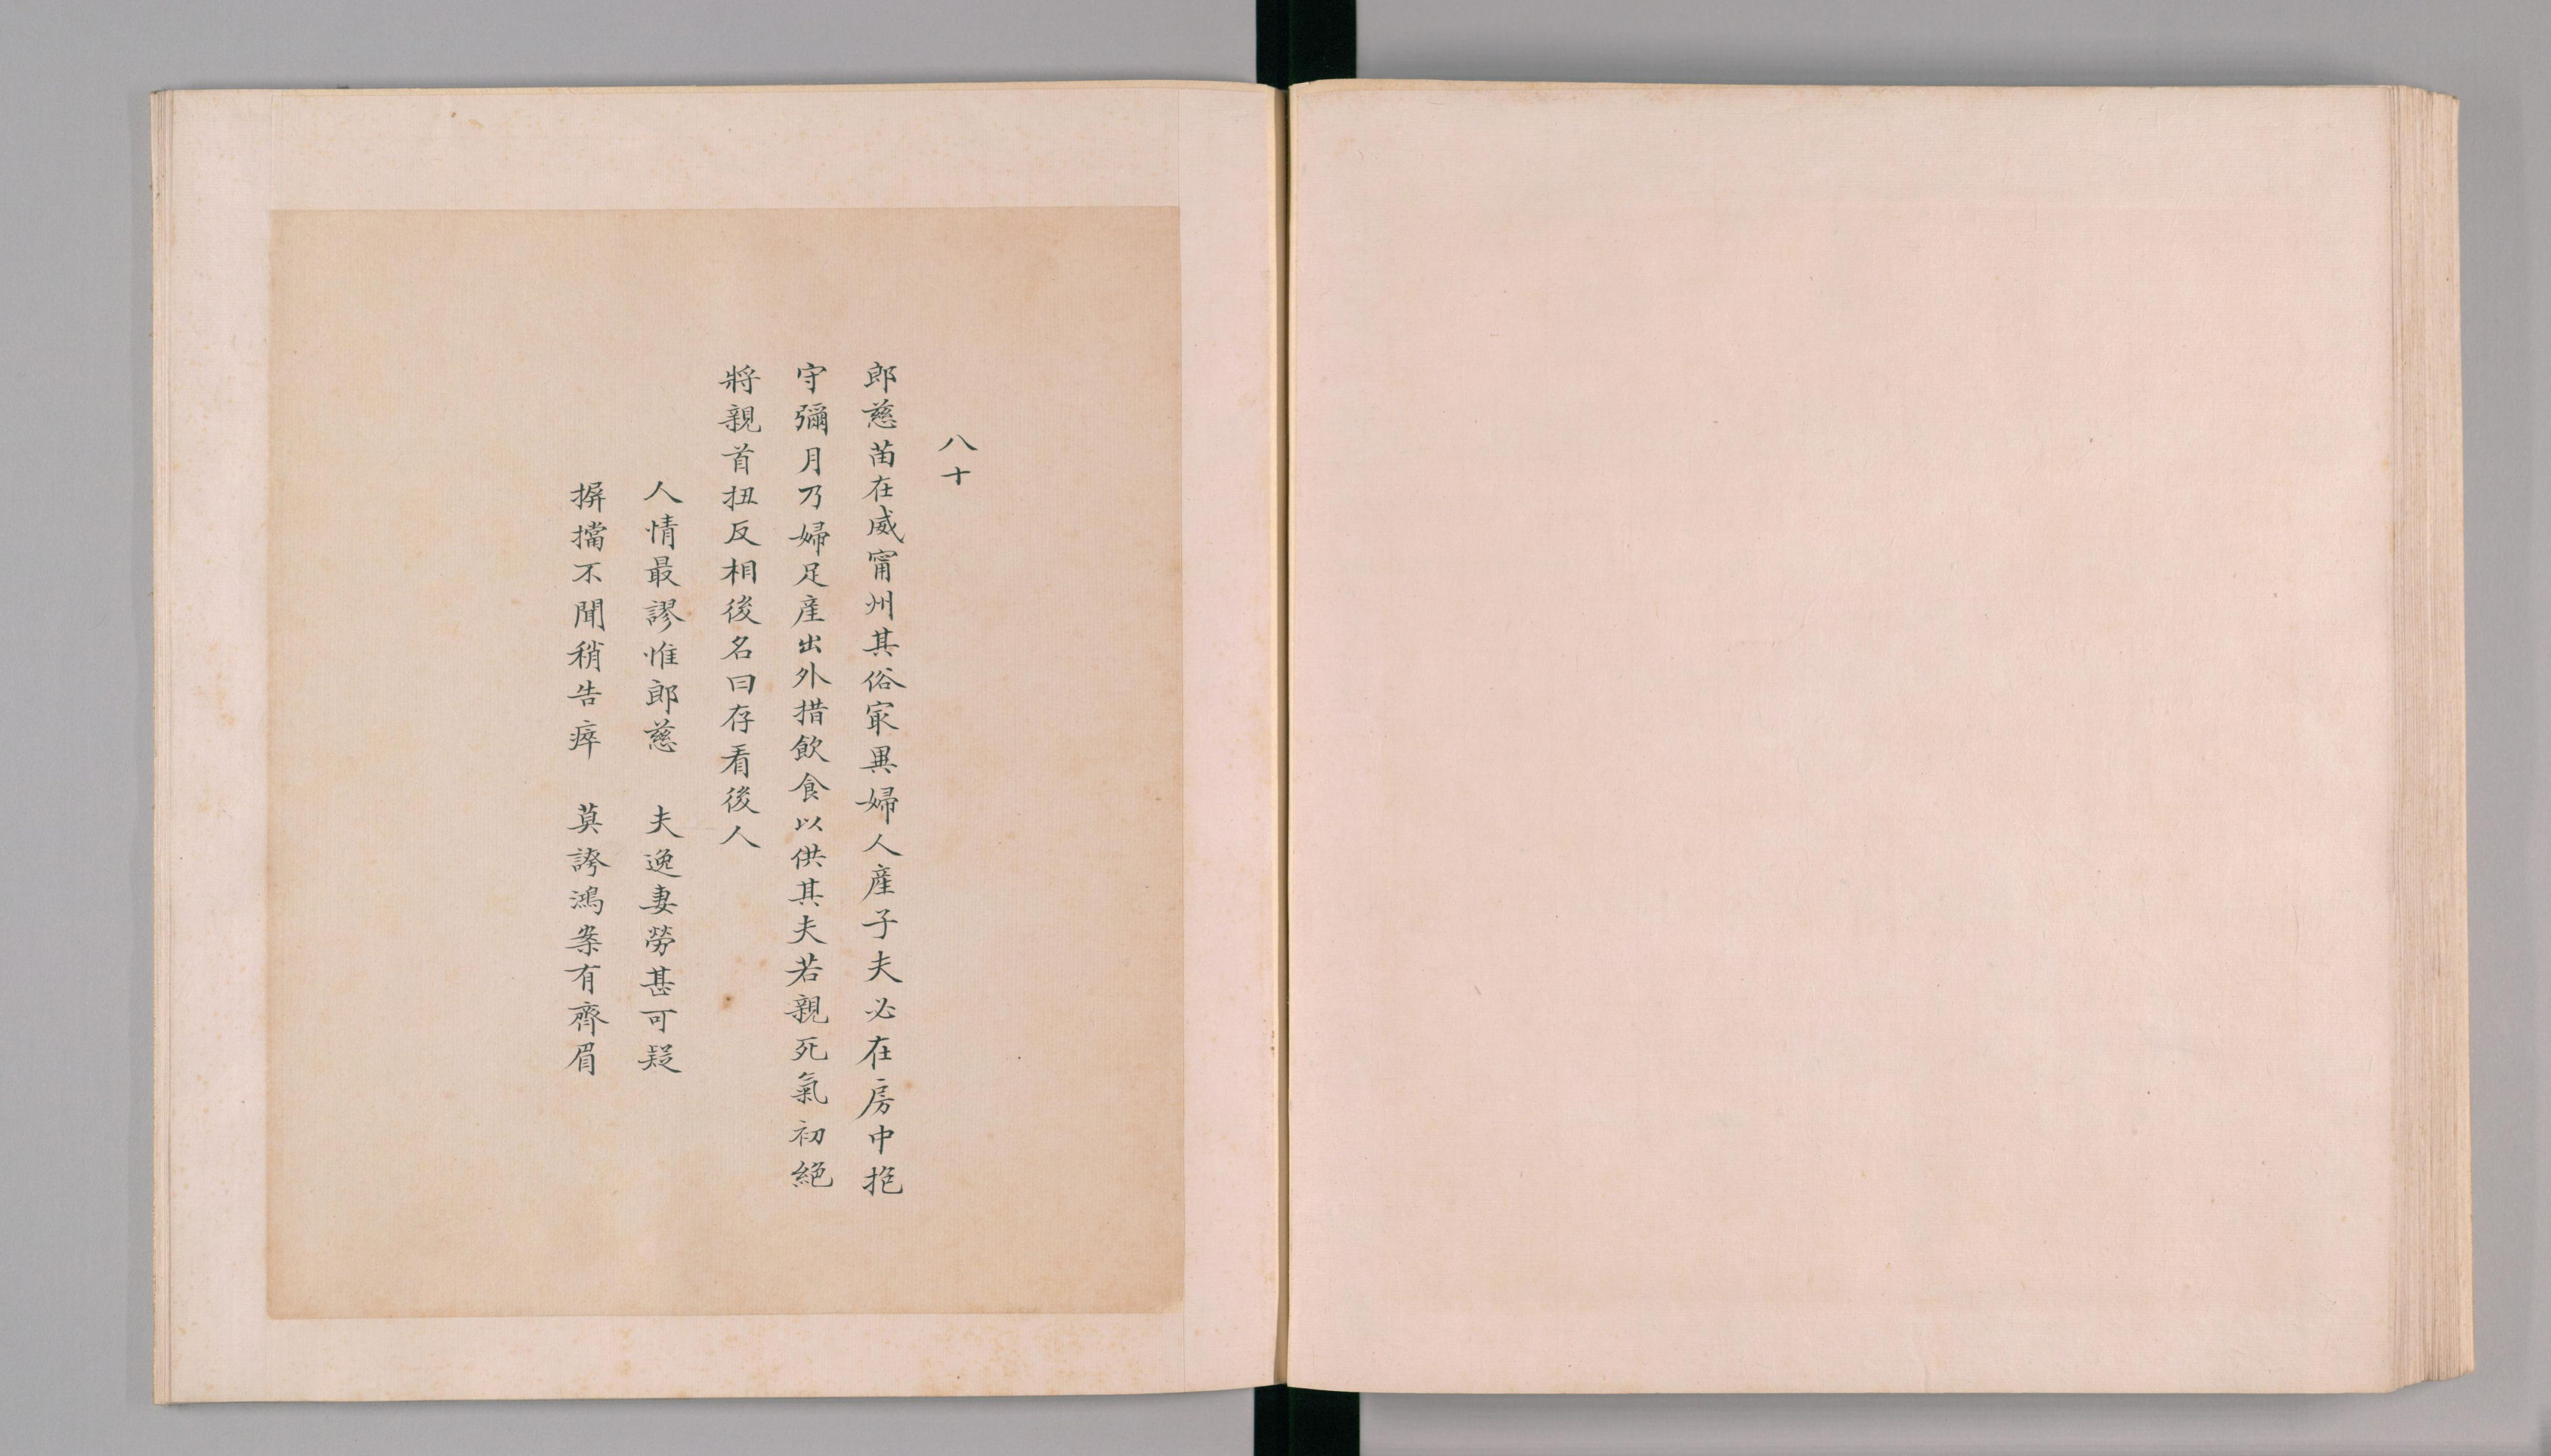 八十
郎慈苗在威甯州其俗冣異婦人產子夫必在房中抱
守彌月乃婦足產出外措飲食以供其夫若親死氣初絕
將親首扭反相後名曰存看後人
人情最謬惟郎慈　夫逸妻勞甚可疑
摒擋不聞稍告瘁　莫誇鴻案有齊眉